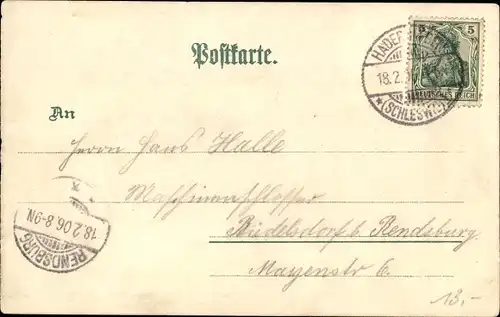 Postkarte.
5 5
DEUTSCHES REICH
HADERSLEBEN
18.2.
*(SCHLESWIG)*
An
Herrn Hans Halle
Maschinenschlosser
Büdelsdorf b. Rendsburg
Mayenstr 6.
RENDSBURG
18.2.06.8-9N
13,-